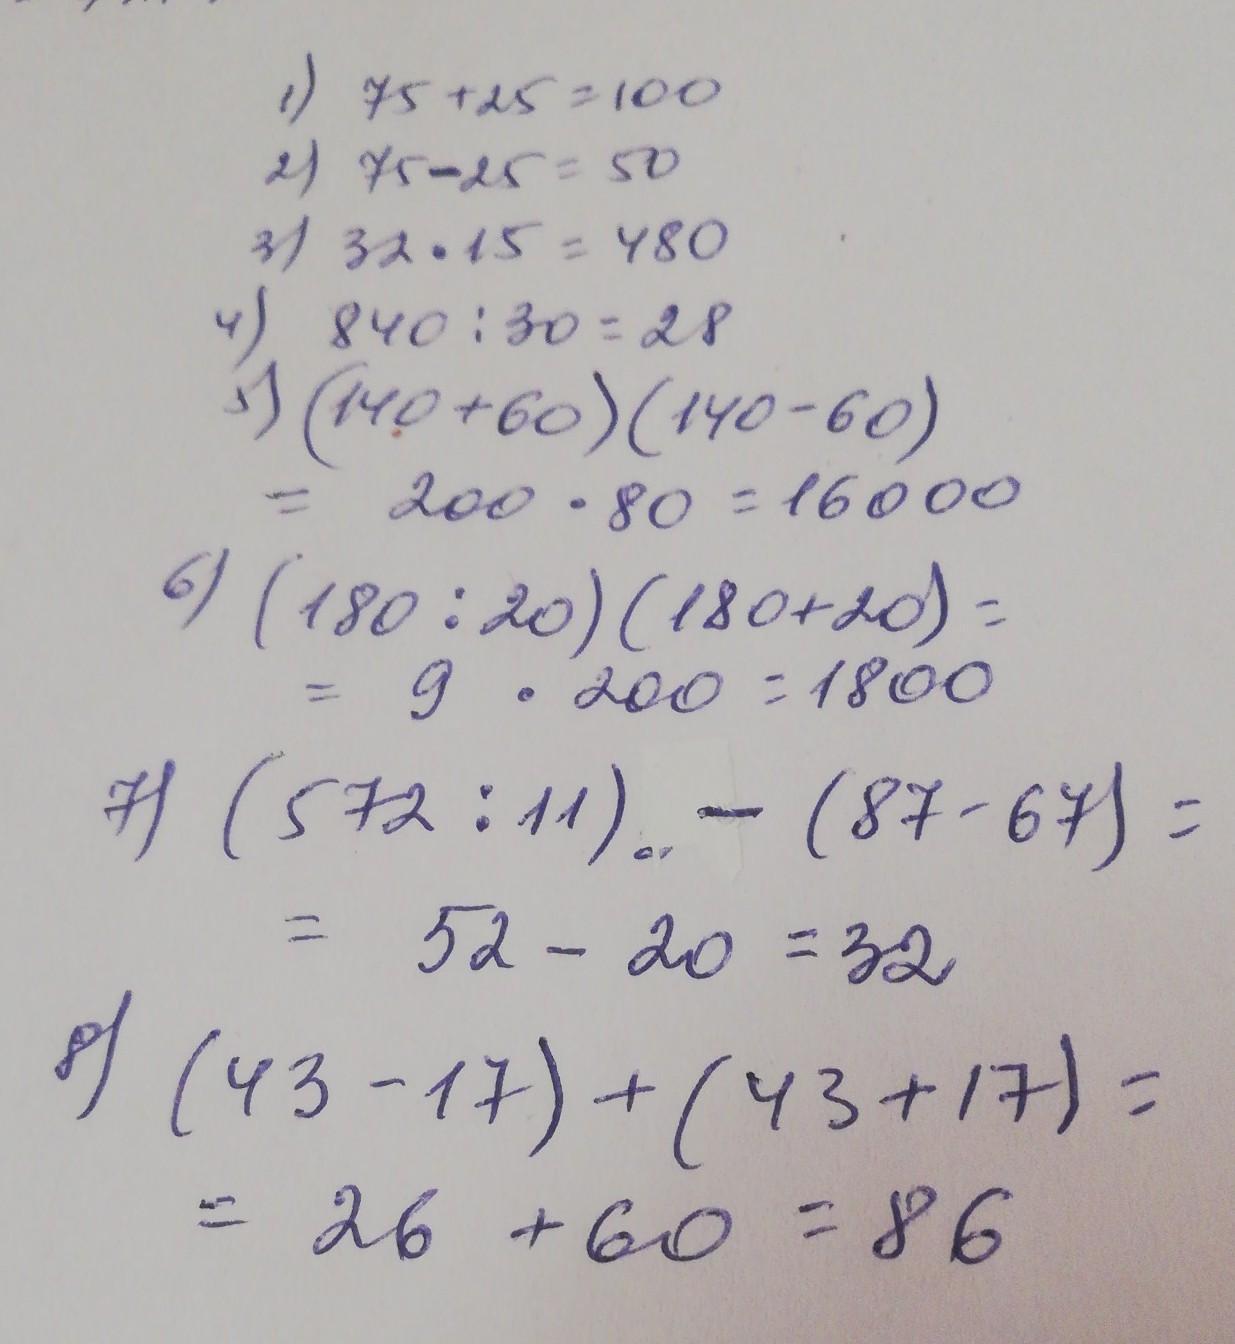 1) 75+25=100
2) 75-25=50
3) 32·15=480
4) 840:30=28
5) (140+60)(140-60)
= 200·80=16000
6) (180:20)(180+20)=
= 9·200=1800
7) (572:11) - (87-67)=
= 52-20=32
8) (43-17)+(43+17)=
= 26+60=86